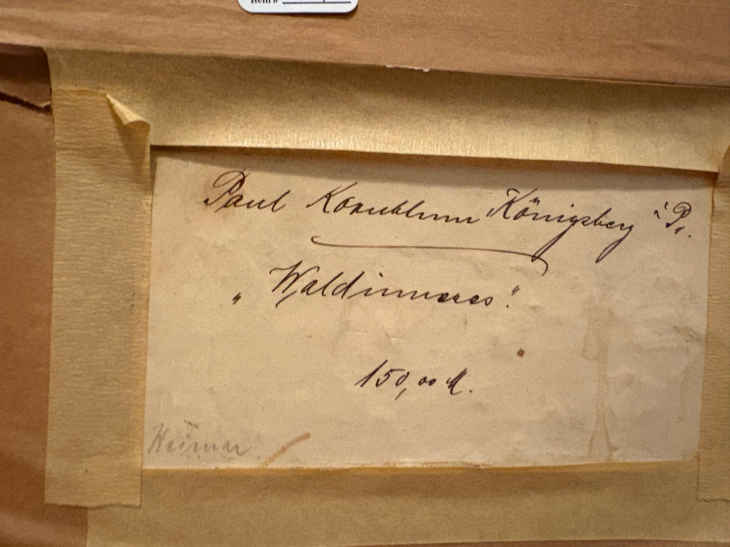 Item #
Paul Kornblum Königsberg i Pr.
„Waldinneres“.
150,00 M.
Weimar